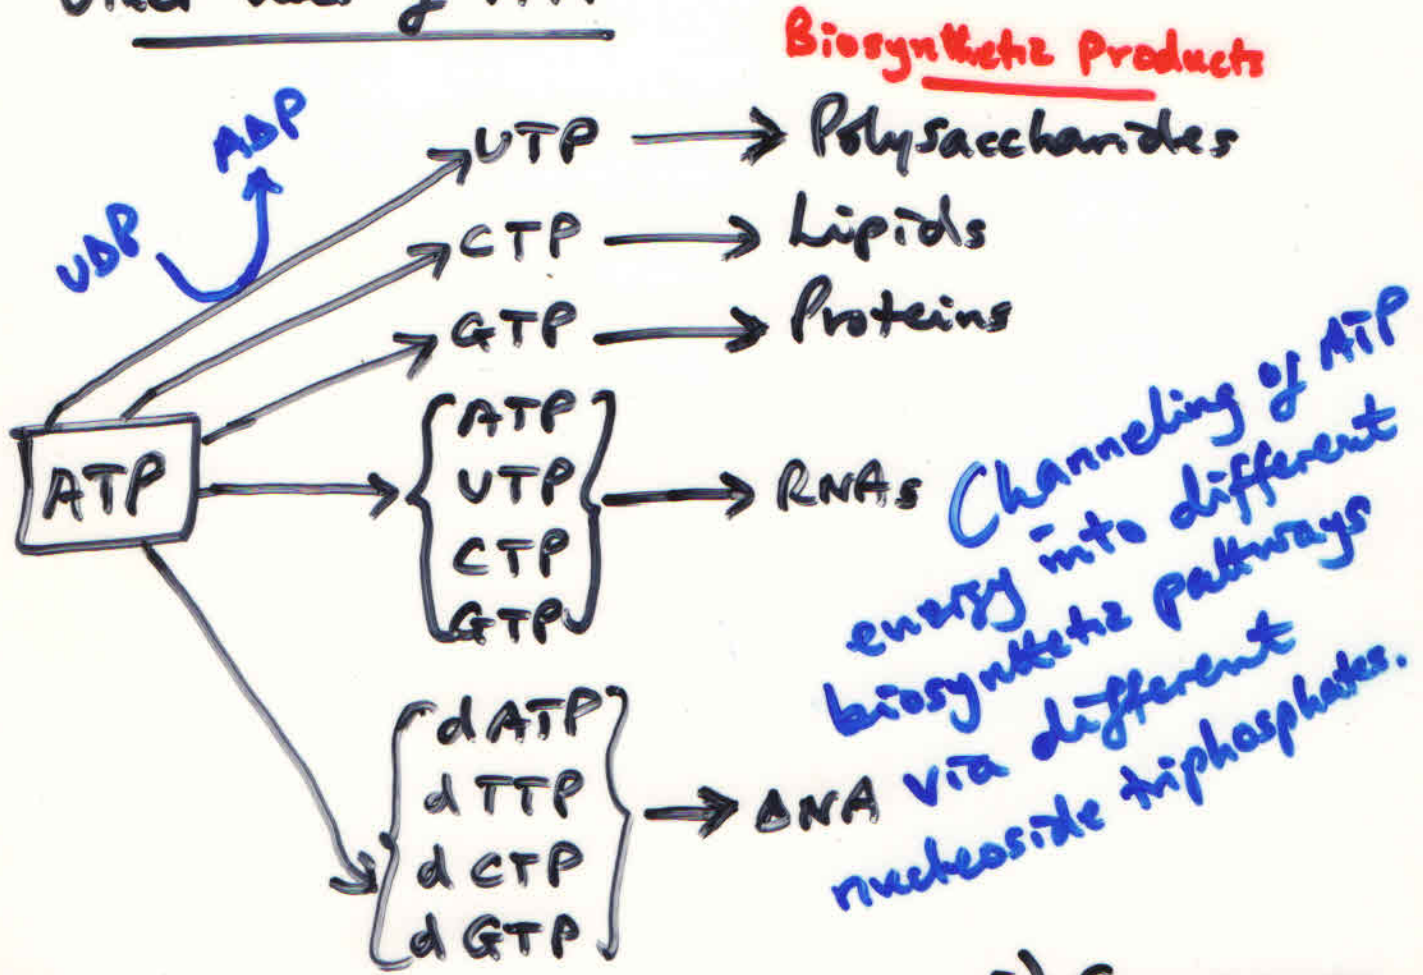 Biosynthetic Products
ADP
UDP
UTP → Polysaccharides
CTP → Lipids
GTP → Proteins
ATP
ATP
UTP
CTP
GTP
→ RNAs
dATP
dTTP
dCTP
dGTP
→ DNA
Channeling of ATP
energy into different
biosynthetic pathways
via different
nucleoside triphosphates.